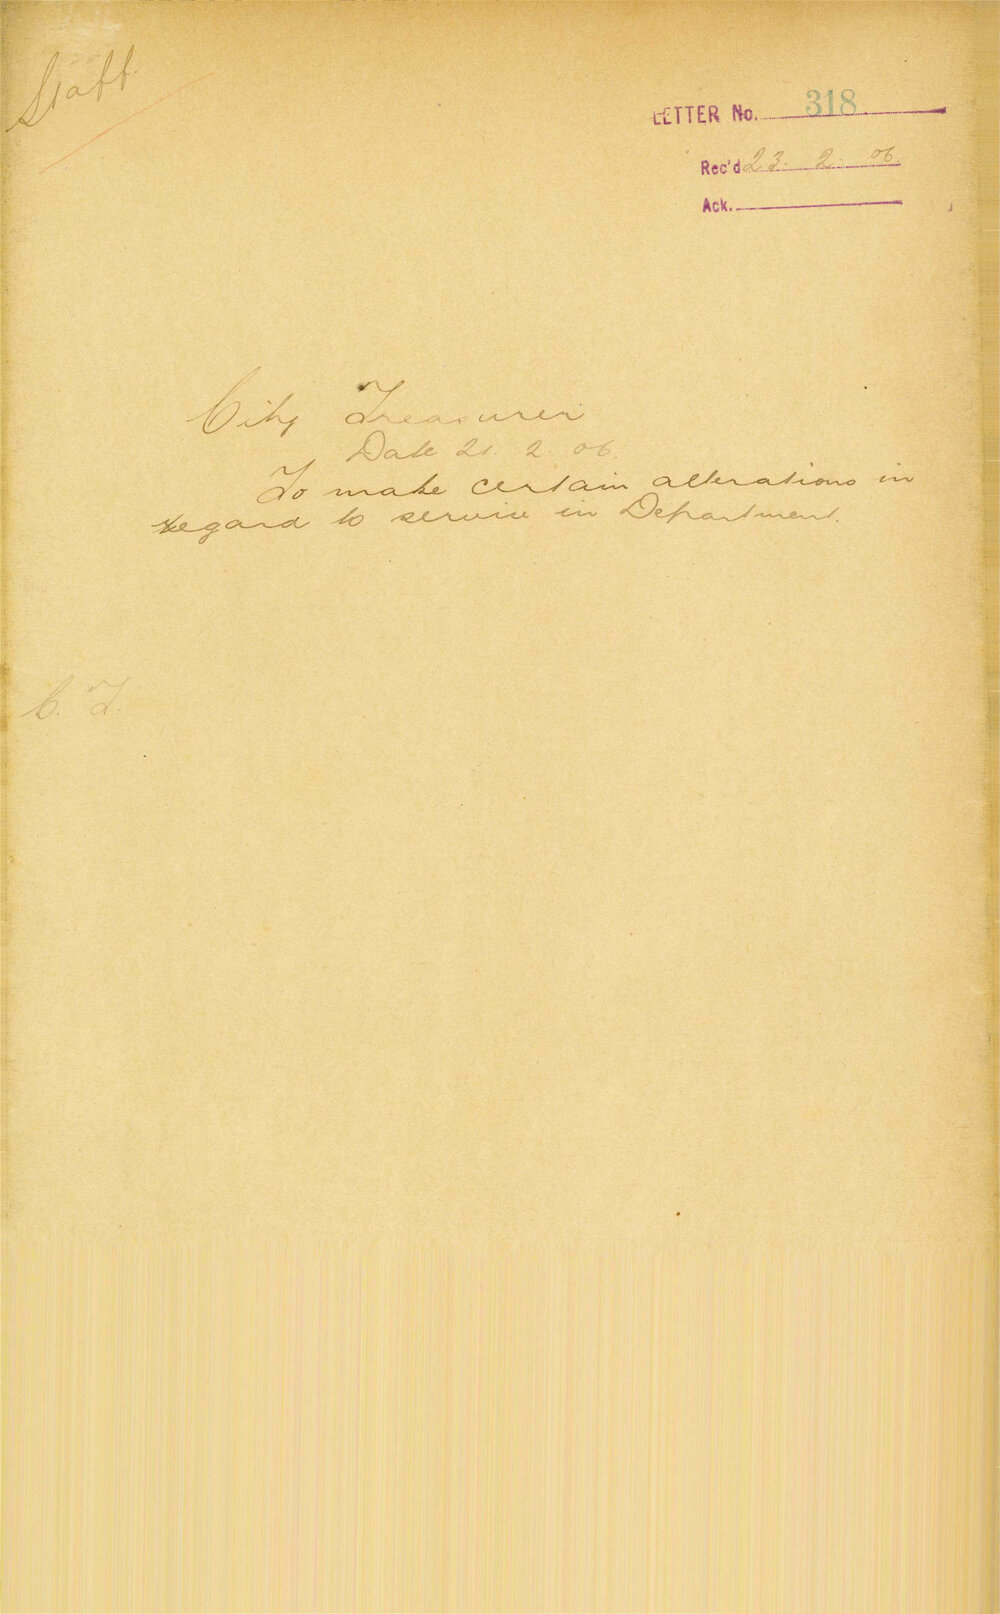 Staff.
LETTER No. 318
Rec'd 23. 2. 06
Ack.
City Treasurer
Date 21. 2. 06.
To make certain alterations in
regard to service in Department.
C. T.